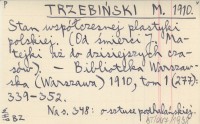 P
TRZEBIŃSKI M. 1910.
Stan współczesnej plastyki
polskiej. (Od śmierci Ma-
tejki aż do dzisiejszych cza-
sów). - Biblioteka Warszaw-
ska (Warszawa) 1910, tom 1 (277):
339-352.
Na s. 348: o sztuce podhalańskiej.
BZ